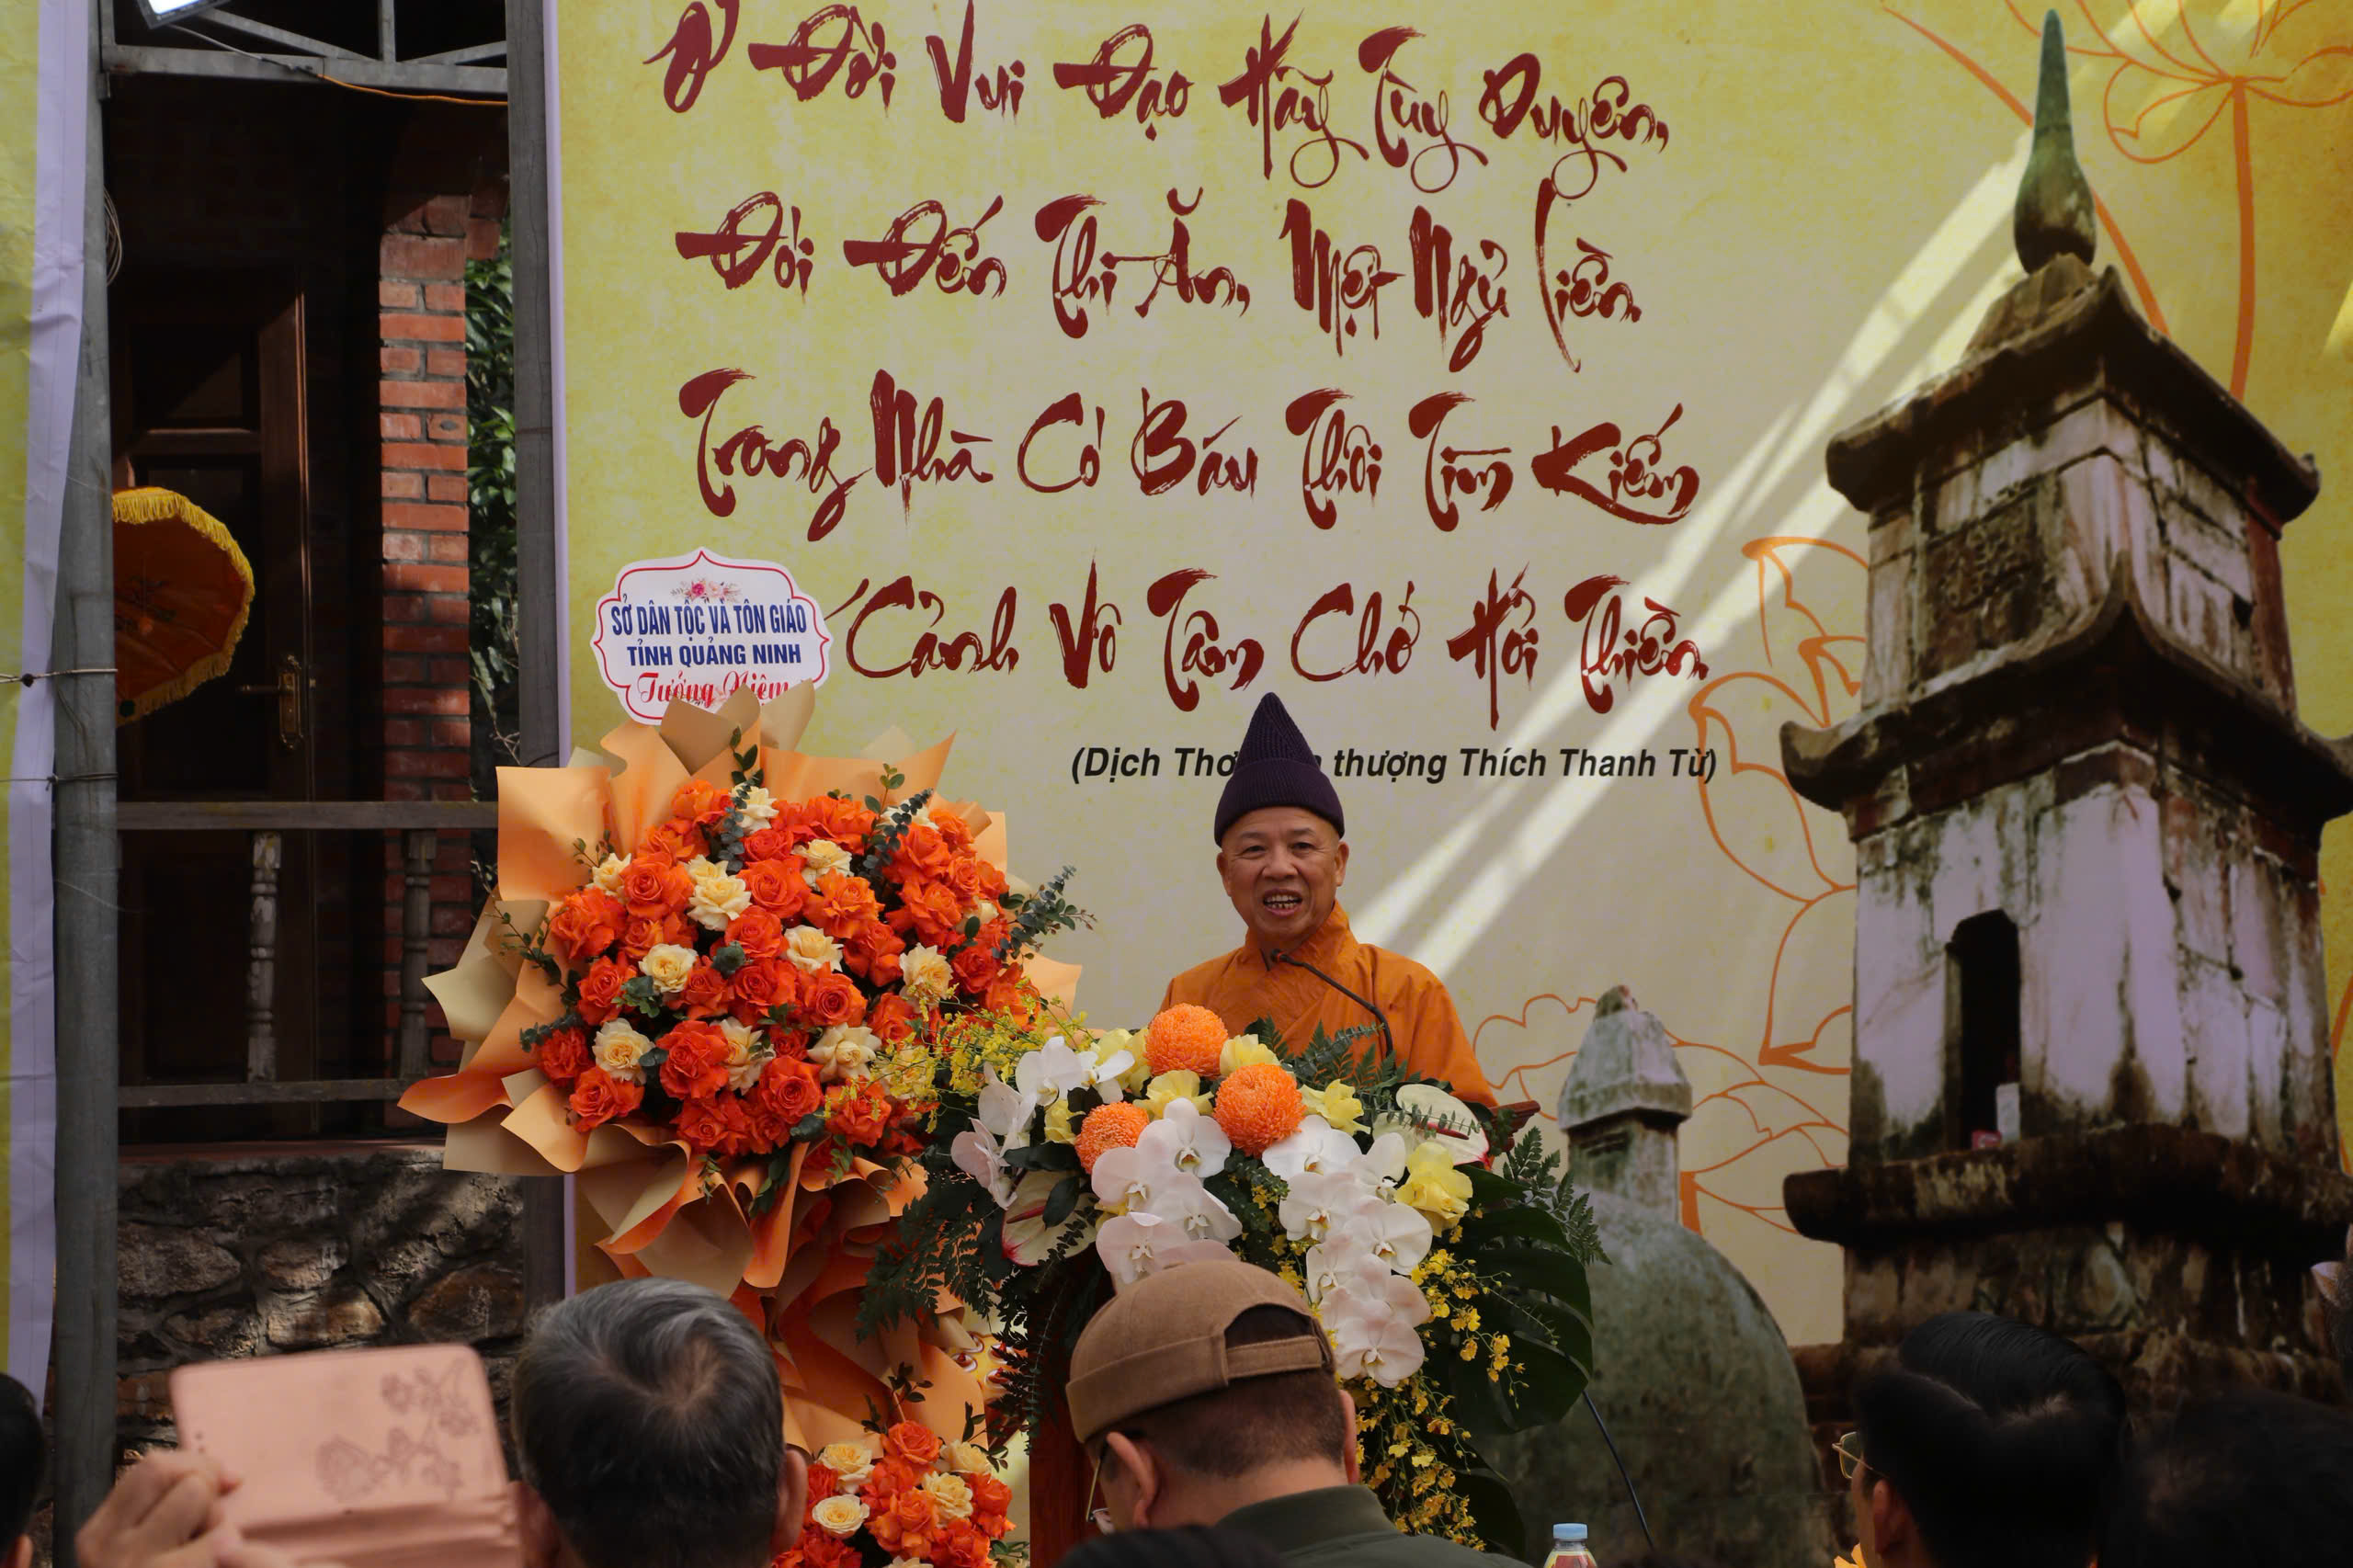 Ở Đời Vui Đạo Hãy Tùy Duyên,
Đói Đến Thì Ăn, Mệt Ngủ Liền.
Trong Nhà Có Báu Thôi Tìm Kiếm
Cảnh Vô Tâm Chớ Hỏi Thiền.
(Dịch Thơ thượng Thích Thanh Từ)
SỞ DÂN TỘC VÀ TÔN GIÁO
TỈNH QUẢNG NINH
Tưởng Niệm